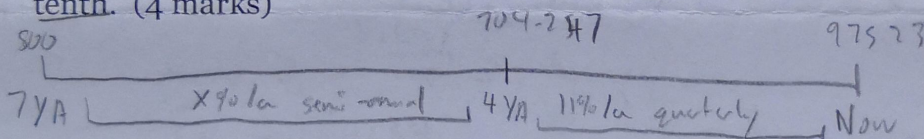 tenth. (4 marks)
500 704.247 975 23
7 YA X%/a semi-annual 4 YA 11%/a quarterly Now